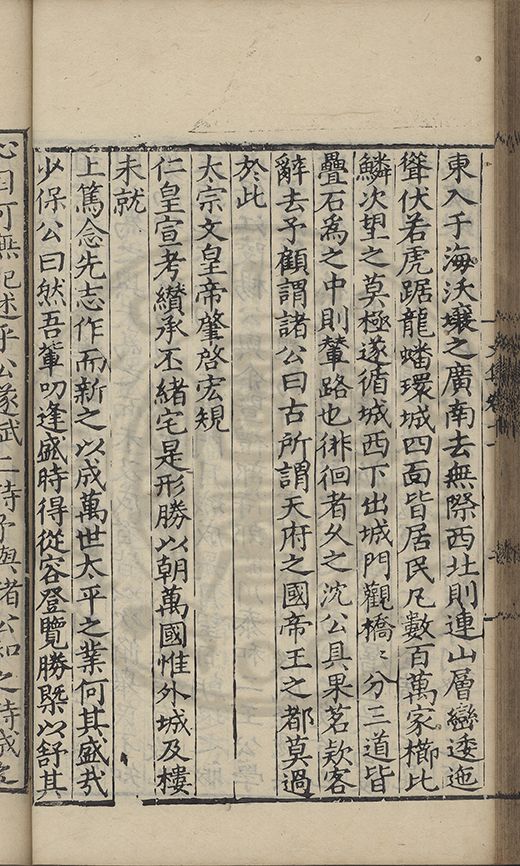 東入于海沃壤之廣南去無際西北則連山層巒逶迤
聳伏若虎踞龍蟠環城四面皆居民凡數百萬家櫛比
鱗次望之莫極遂循城西下出城門觀橋〻分三道皆
疊石為之中則輦路也徘徊者久之沈公具果茗款客
辭去予顧謂諸公曰古所謂天府之國帝王之都莫過
於此
太宗文皇帝肇啓宏規
仁皇宣考纘承丕緒宅是形勝以朝萬國惟外城及樓
未就
上篤念先志作而新之以成萬世太平之業何其盛㢤
少保公曰然吾輩叨逢盛時得從容登覽勝槩以舒其
心目可無紀述乎公遂賦二詩予與諸公和之詩成